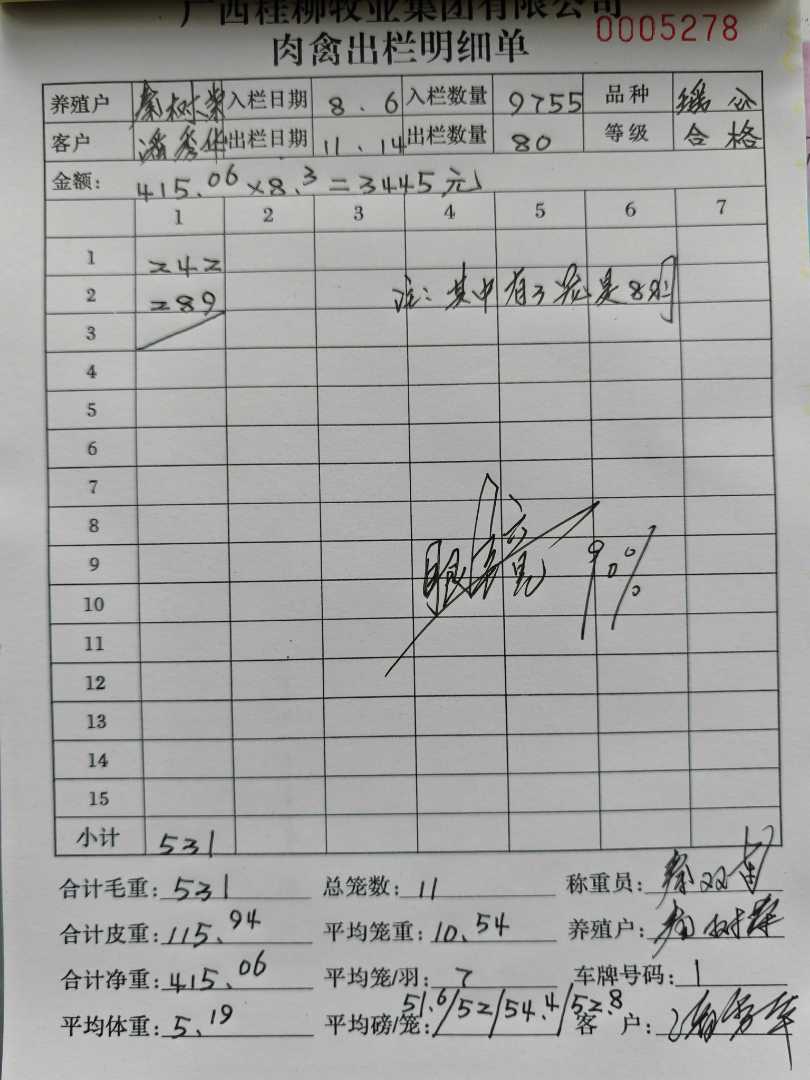 广西桂柳牧业集团有限公司
肉禽出栏明细单 0005278
养殖户 秦树荣 入栏日期 8.6 入栏数量 9755 品种 瑶公
客户 潘秀华 出栏日期 11.14 出栏数量 80 等级 合格
金额: 415.06×8.3=3445元
1 2 3 4 5 6 7
1 242
2 289 注:其中有3笼是8只
3
4
5
6
7
8
9 90%
10
11
12
13
14
15
小计 531
合计毛重: 531 总笼数: 11 称重员:
合计皮重: 115.94 平均笼重: 10.54 养殖户:
合计净重: 415.06 平均笼/羽: 7 车牌号码: 1
平均体重: 5.19 平均磅/笼: 51.6/52/54.4/52.8 客户: 潘秀华